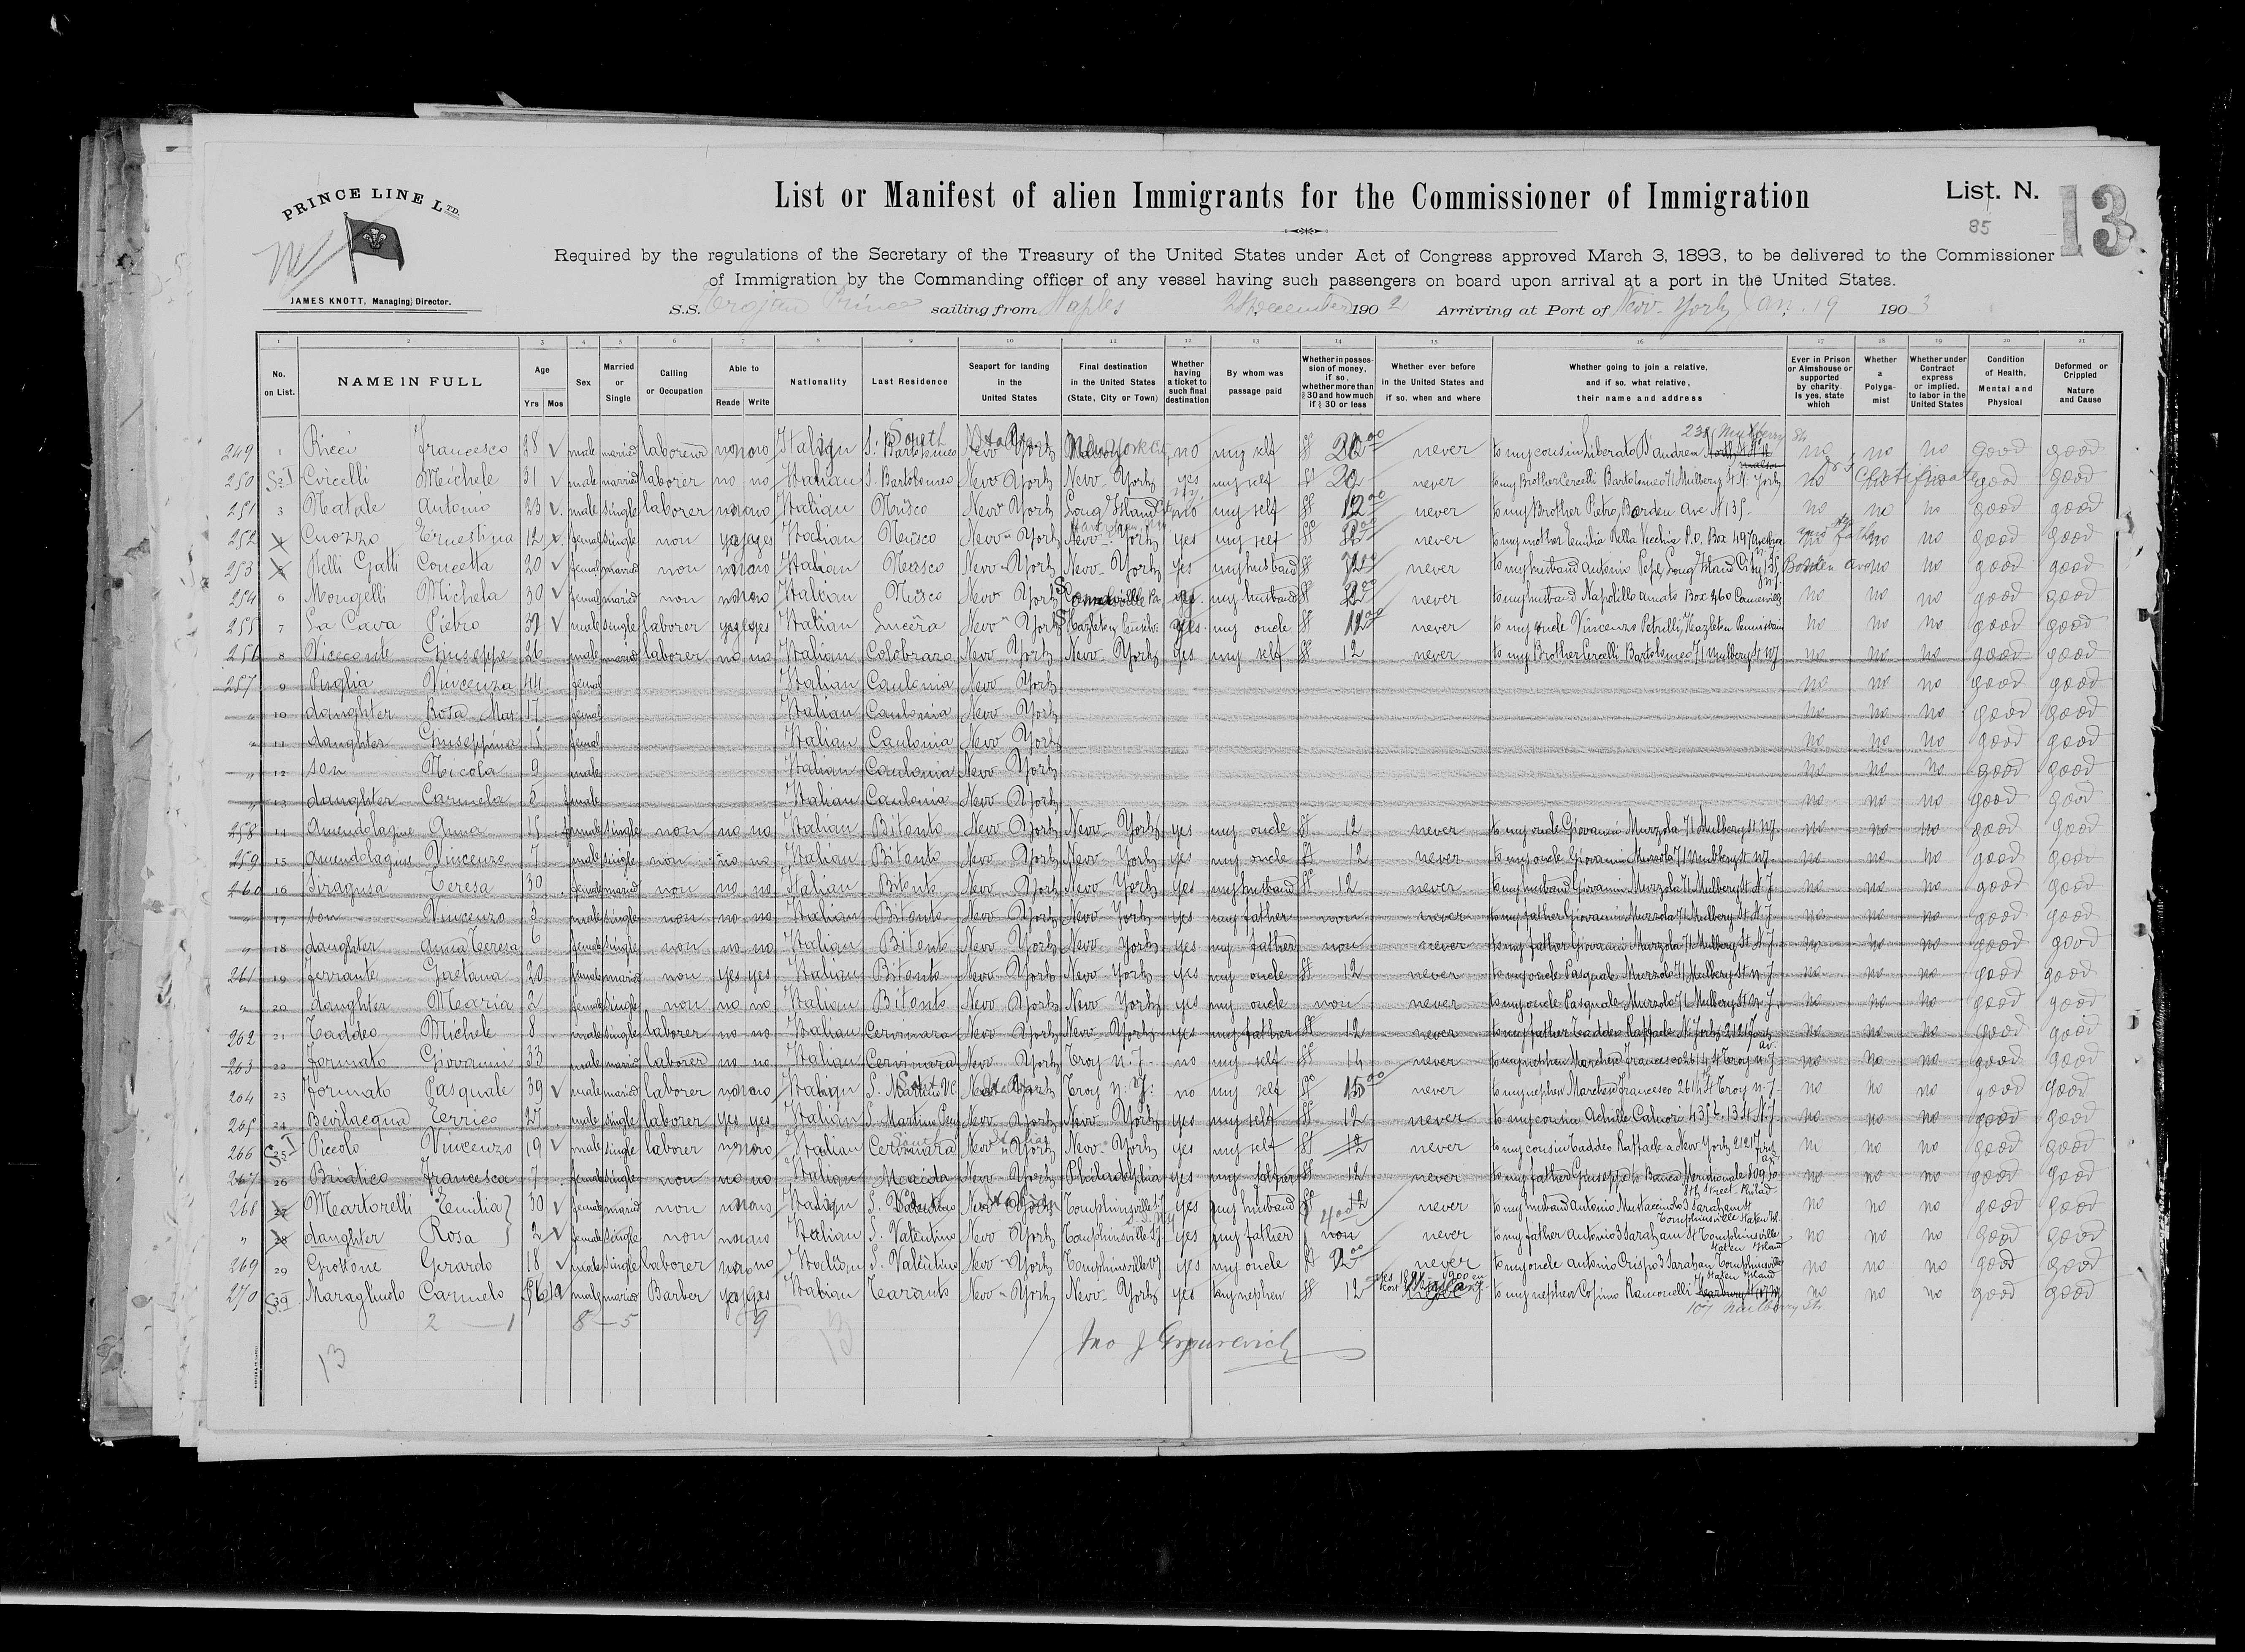 PRINCE LINE LTD.
JAMES KNOTT, Managing Director.
List or Manifest of alien Immigrants for the Commissioner of Immigration
List. N. 13
85
Required by the regulations of the Secretary of the Treasury of the United States under Act of Congress approved March 3, 1893, to be delivered to the Commissioner
of Immigration by the Commanding officer of any vessel having such passengers on board upon arrival at a port in the United States.
S.S. Trojan Prince sailing from Naples December 1902 Arriving at Port of New-York Jan. 19 1903
1 2 3 4 5 6 7 8 9 10 11 12 13 14 15 16 17 18 19 20 21
No. on List. NAME IN FULL Age Yrs Mos Sex Married or Single Calling or Occupation Able to Reade Write Nationality Last Residence Seaport for landing in the United States Final destination in the United States (State, City or Town) Whether having a ticket to such final destination By whom was passage paid Whether in possession of money, if so, whether more than $ 30 and how much if $ 30 or less Whether ever before in the United States and if so, when and where Whether going to join a relative, and if so, what relative, their name and address Ever in Prison or Almshouse or supported by charity. Is yes, state which Whether a Polygamist Whether under Contract express or implied, to labor in the United States Condition of Health, Mental and Physical Deformed or Crippled Nature and Cause
249 1 Ricci Francesco 28 male married laborer no no Italian S. Bartolomeo New York no my self $ 20 never to my cousin Liberato D'andrea 231 Mulberry St no no no good good
250 Circelli Michele 31 male married laborer no no Italian S. Bartolomeo New York New York yes my self $ 20 never to my Brother Cercelli Bartolomeo 71 Mulberry St N. York no Certificate good good
251 3 Natale Antonio 23 male single laborer no no Italian Nusco New York Long Island no my self $ 12 never to my Brother Pietro, Borden ave N 135 no no no good good
252 4 Cuozzo Ernestina 12 female single non yes yes Italian Nusco New York New York yes my self $ never to my mother Emilia Della Vecchia P.O. Box 497 no no good good
253 5 Nelli Gatti Concetta 20 female married non no no Italian Nusco New York New York yes my husband $ 12 never to my husband Antonio Pepe Long Island City 135 Borden ave no no good good
254 6 Mongelli Michela 30 female married non no no Italian Nusco New York yes my husband $ 12 never to my husband Napolillo Amato Box 460 no no no good good
255 7 La Cava Pietro 39 male single laborer yes yes Italian Lucera New York Hazleton yes my oncle $ 12 never to my oncle Vincenzo Petrilli, Hazleton no no no good good
256 8 Viceconte Giuseppe 26 male married laborer no no Italian Colobraro New York New York yes my self $ 12 never to my Brother Cercelli Bartolomeo 71 Mulbery St NJ. no no no good good
257 9 Puglia Vincenza 44 femal Italian Caulonia New York no no no good good
" 10 daughter Rosa Mar 17 femal Italian Caulonia New York no no no good good
" 11 daughter Giuseppina femal Italian Caulonia New York no no no good good
" 12 son Nicola 9 male Italian Caulonia New York no no no good good
" 13 daughter Carmela 5 female Italian Caulonia New York no no no good good
258 14 Amendolagine Anna 15 female single non no no Italian Bitonto New York New York yes my oncle $ 12 never to my oncle Giovanni Murzola 71 Mulbery St NJ. no no no good good
259 15 Amendolagine Vincenzo 7 male single non no no Italian Bitonto New York New York yes my oncle $ 12 never to my oncle Giovanni Murzola 71 Mulbery st NJ. no no no good good
260 16 Siragusa Teresa 30 female married non no no Italian Bitonto New York New York yes my husband $ 12 never to my husband Giovanni Murzola 71 Mulbery St N.J. no no no good good
" 17 son Vincenzo male single non no no Italian Bitonto New York New York yes my father non never to my father Giovanni Murzola 71 Mulbery St N.J. no no no good good
" 18 daughter Anna Teresa 6 female single non no no Italian Bitonto New York New York yes my father non never to my father Giovanni Murzola 71 Mulbery St N.J. no no no good good
261 19 Ferrante Gaetana 20 female married non yes yes Italian Bitonto New York New York yes my oncle $ 12 never to my oncle Pasquale Murzola 71 Mulbery St N.J. no no no good good
" 20 daughter Maria 2 female single non no no Italian Bitonto New York New York yes my oncle non never to my oncle Pasquale Murzola 71 Mulbery St N.J. no no no good good
262 21 Taddeo Michele 8 male single laborer no no Italian Cervinara New York New York yes my father $ 12 never to my father Taddeo Raffaele N. York 2121 First av. no no no good good
263 22 Formato Giovanni 33 male married laborer no no Italian Cervinara New York Troy N.J. no my self $ 14 never to my nephew Marchese Francesco 261 4 St Troy N.J. no no no good good
264 23 Formato Pasquale 39 male married laborer no no Italian S. Martino New York Troy N.Y. no my self $ 15 never to my nephew Marchese Francesco 261 4 St Troy N.J. no no no good good
265 24 Bevilacqua Errico 27 male single laborer yes yes Italian S. Martino New York New York yes my self $ 12 never to my cousin Achille 435 E. 13 St. N.J. no no no good good
266 25 Piccolo Vincenzo 19 male single laborer no no Italian Cervinara New York New York yes my self $ 12 never to my cousin Taddeo Raffaele a New York 2121 First av no no no good good
267 26 Briatico Francesca 7 female single non no no Italian Maida New York Philadelphia yes my father $ 12 never to my father Giuseppe to Banca Meridionale 809 So 8th Street Philad. no no no good good
268 27 Martorelli Emilia 30 female married non no no Italian S. Valentino New York Tomphinsville yes my husband $ 12 never to my husband Antonio 3 Sarahann St Tomphinsville Staten Isl. no no no good good
" 28 daughter Rosa 2 female single non no no Italian S. Valentino New York Tomphinsville yes my father non never to my father Antonio 3 Sarahann St Tomphinsville Staten Island no no no good good
269 29 Grottone Gerardo 18 male single laborer no no Italian S. Valentino New York Tomphinsville yes my oncle $ never to my oncle Antonio Crispo 3 Sarahan Tomphinsville Staten Island no no no good good
270 30 Maragliulo Carmelo 56 male married Barber yes yes Italian Taranto New York New York yes my nephew $ 12 yes to my nephew Cosimo Ramonelli 107 Mulberry St no no no good good
2 — 1 8 — 5 9
13 13